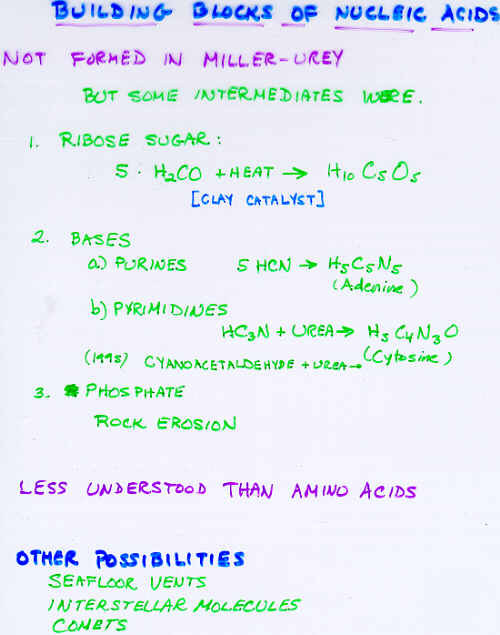 BUILDING BLOCKS OF NUCLEIC ACIDS
NOT FORMED IN MILLER-UREY
BUT SOME INTERMEDIATES WERE.
1. RIBOSE SUGAR:
5 · H₂CO + HEAT → H₁₀C₅O₅
[CLAY CATALYST]
2. BASES
a.) PURINES 5 HCN → H₅C₅N₅
(Adenine)
b) PYRIMIDINES
HC₃N + UREA → H₅C₄N₃O
(1995) CYANOACETALDEHYDE + UREA → (Cytosine)
3. PHOSPHATE
ROCK EROSION
LESS UNDERSTOOD THAN AMINO ACIDS
OTHER POSSIBILITIES
SEAFLOOR VENTS
INTERSTELLAR MOLECULES
COMETS